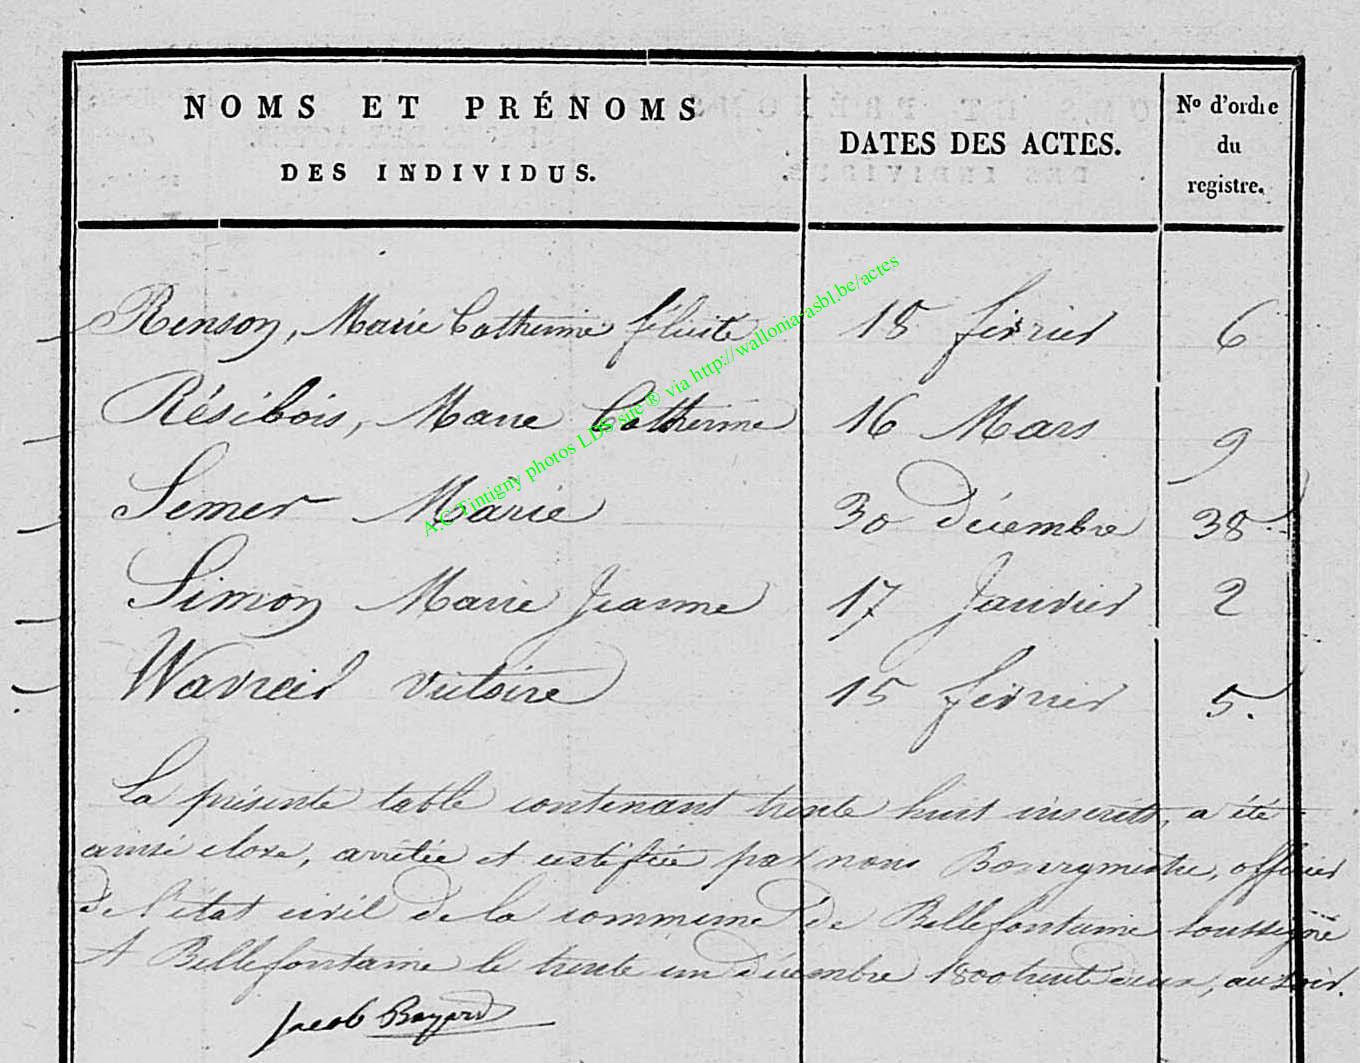 NOMS ET PRÉNOMS
DES INDIVIDUS.
DATES DES ACTES.
No d'ordre
du
registre.
Renson, Marie Catherine félicité 18 février 6
Résibois, Marie Catherine 16 Mars 9
Semer Marie 30 décembre 38
Simon Marie Jeanne 17 Janvier 2
Victoire 15 février 5.
La présente table contenant trente huit inscrits, a été
ainsi close, arretée et certifiée par nous Bourgmestre, officier
de l'état civil de la commune de Bellefontaine soussigné
A Bellefontaine le trente un décembre 1800 trente deux, au soir.
Jacob Bayard
A.C. Tintigny photos LDS site ® via http://wallonia-asbl.be/actes